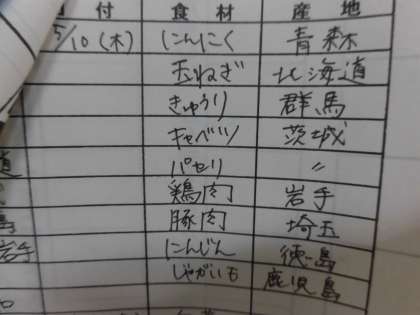 付 食材 産地
5/10(木) にんにく 青森
玉ねぎ 北海道
きゅうり 群馬
キャベツ 茨城
道 パセリ 〃
鶏肉 岩手
島 豚肉 埼玉
岩手 にんじん 徳島
じゃがいも 鹿児島